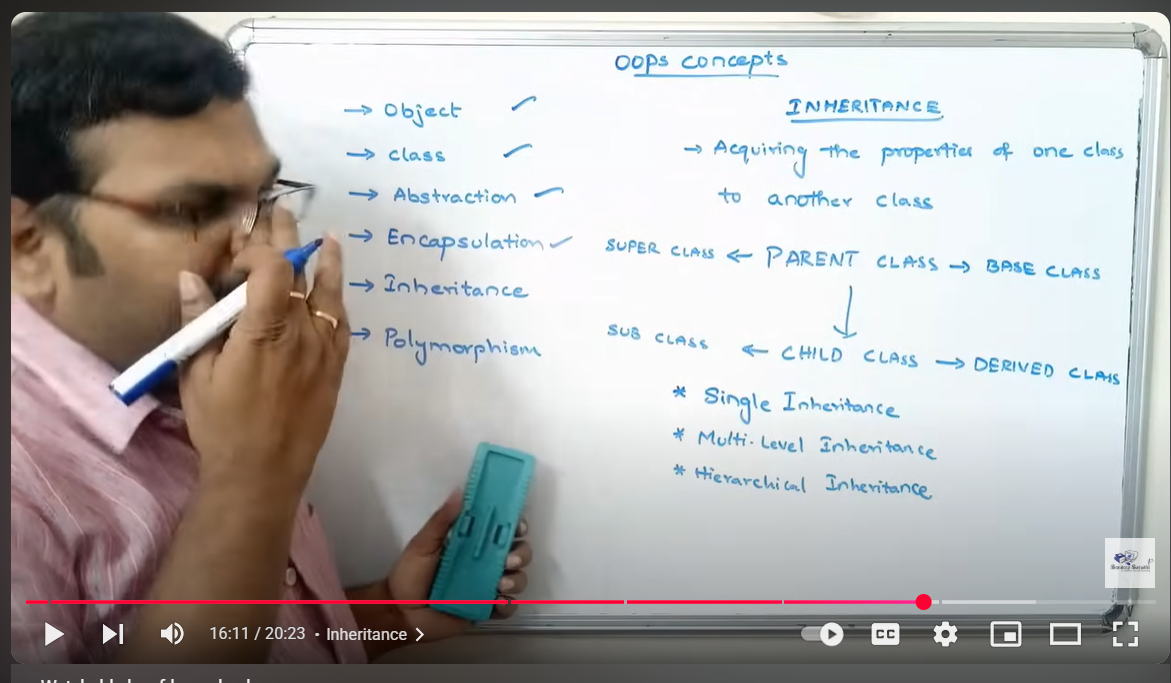 OOPS CONCEPTS
→ Object ✓
→ class ✓
→ Abstraction ✓
→ Encapsulation ✓
→ Inheritance
→ Polymorphism
INHERITANCE
→ Acquiring the properties of one class
to another class
SUPER CLASS ← PARENT CLASS → BASE CLASS
SUB CLASS ← CHILD CLASS → DERIVED CLASS
* Single Inheritance
* Multi-Level Inheritance
* Hierarchical Inheritance
16:11 / 20:23 • Inheritance
CC